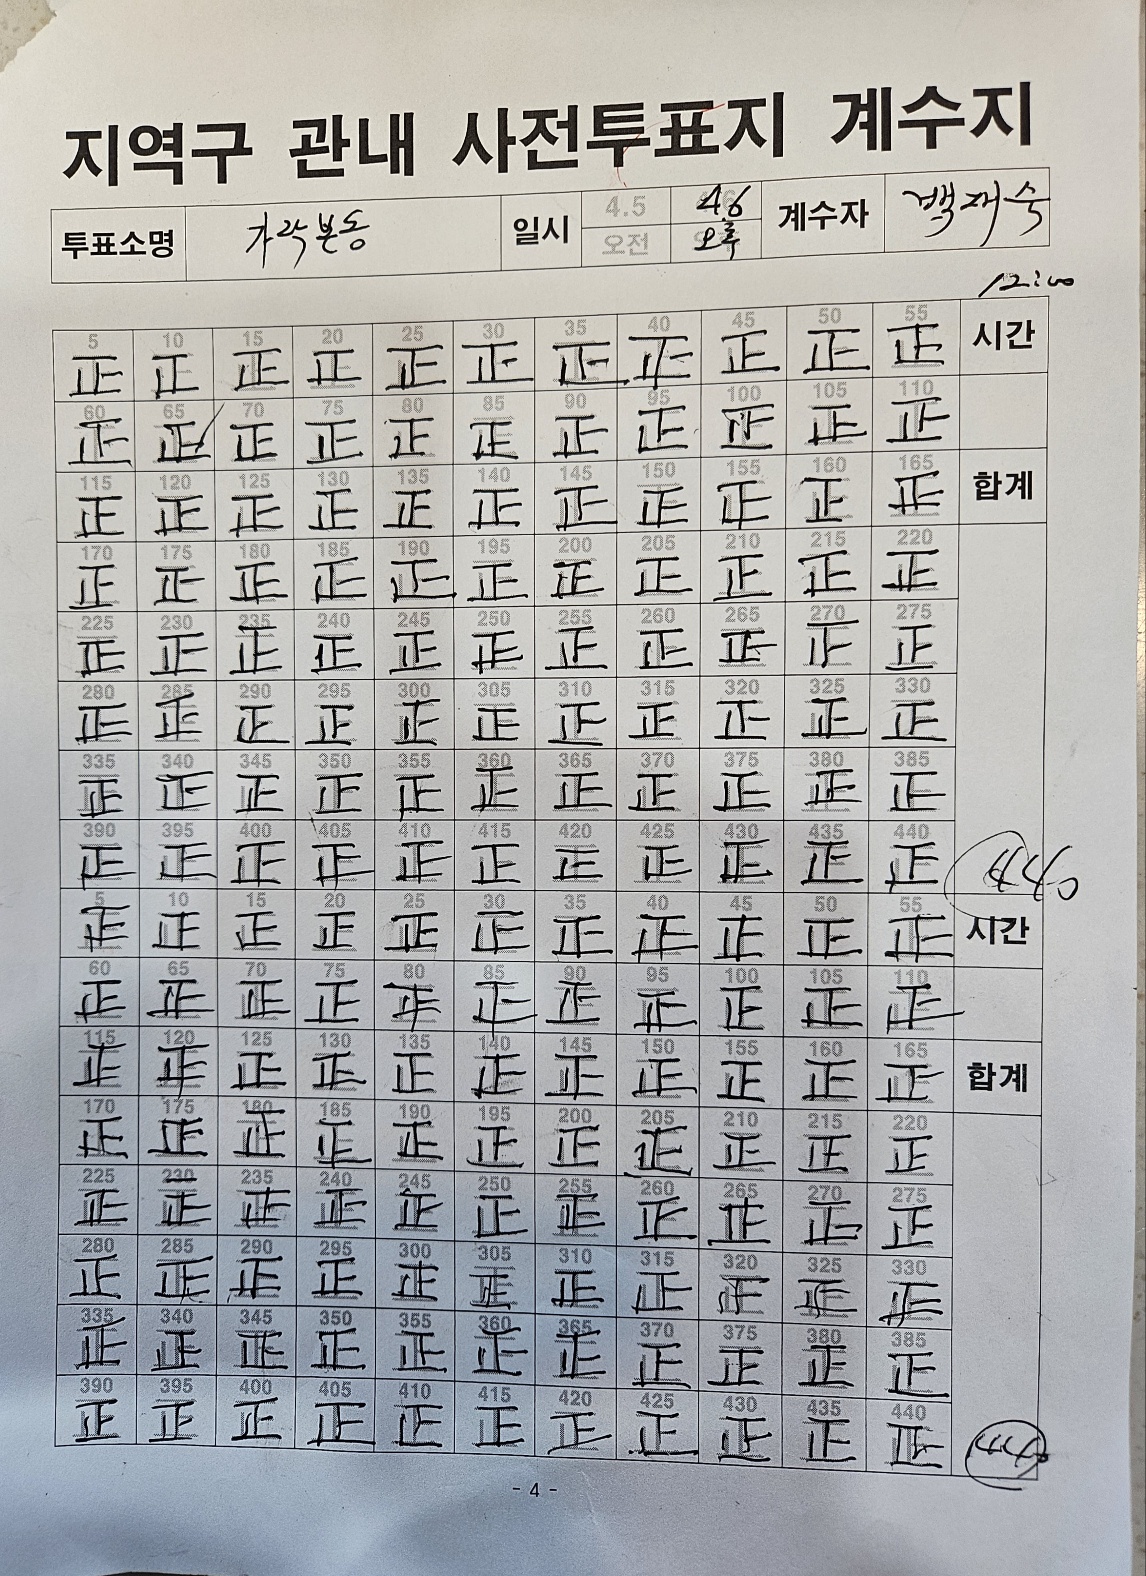 지역구 관내 사전투표지 계수지
투표소명 가락본동 일시 4.5 4.6 계수자 백재숙
오전 오후
12:00
5 10 15 20 25 30 35 40 45 50 55 시간
正 正 正 正 正 正 正 正 正 正 正
60 65 70 75 80 85 90 95 100 105 110
正 正 正 正 正 正 正 正 正 正 正
115 120 125 130 135 140 145 150 155 160 165 합계
正 正 正 正 正 正 正 正 正 正 正
170 175 180 185 190 195 200 205 210 215 220
正 正 正 正 正 正 正 正 正 正 正
225 230 235 240 245 250 255 260 265 270 275
正 正 正 正 正 正 正 正 正 正 正
280 285 290 295 300 305 310 315 320 325 330
正 正 正 正 正 正 正 正 正 正 正
335 340 345 350 355 360 365 370 375 380 385
正 正 正 正 正 正 正 正 正 正 正
390 395 400 405 410 415 420 425 430 435 440
正 正 正 正 正 正 正 正 正 正 正 440
5 10 15 20 25 30 35 40 45 50 55 시간
正 正 正 正 正 正 正 正 正 正 正
60 65 70 75 80 85 90 95 100 105 110
正 正 正 正 正 正 正 正 正 正 正
115 120 125 130 135 140 145 150 155 160 165 합계
正 正 正 正 正 正 正 正 正 正 正
170 175 180 185 190 195 200 205 210 215 220
正 正 正 正 正 正 正 正 正 正 正
225 230 235 240 245 250 255 260 265 270 275
正 正 正 正 正 正 正 正 正 正 正
280 285 290 295 300 305 310 315 320 325 330
正 正 正 正 正 正 正 正 正 正 正
335 340 345 350 355 360 365 370 375 380 385
正 正 正 正 正 正 正 正 正 正 正
390 395 400 405 410 415 420 425 430 435 440
正 正 正 正 正 正 正 正 正 正 正 440
- 4 -